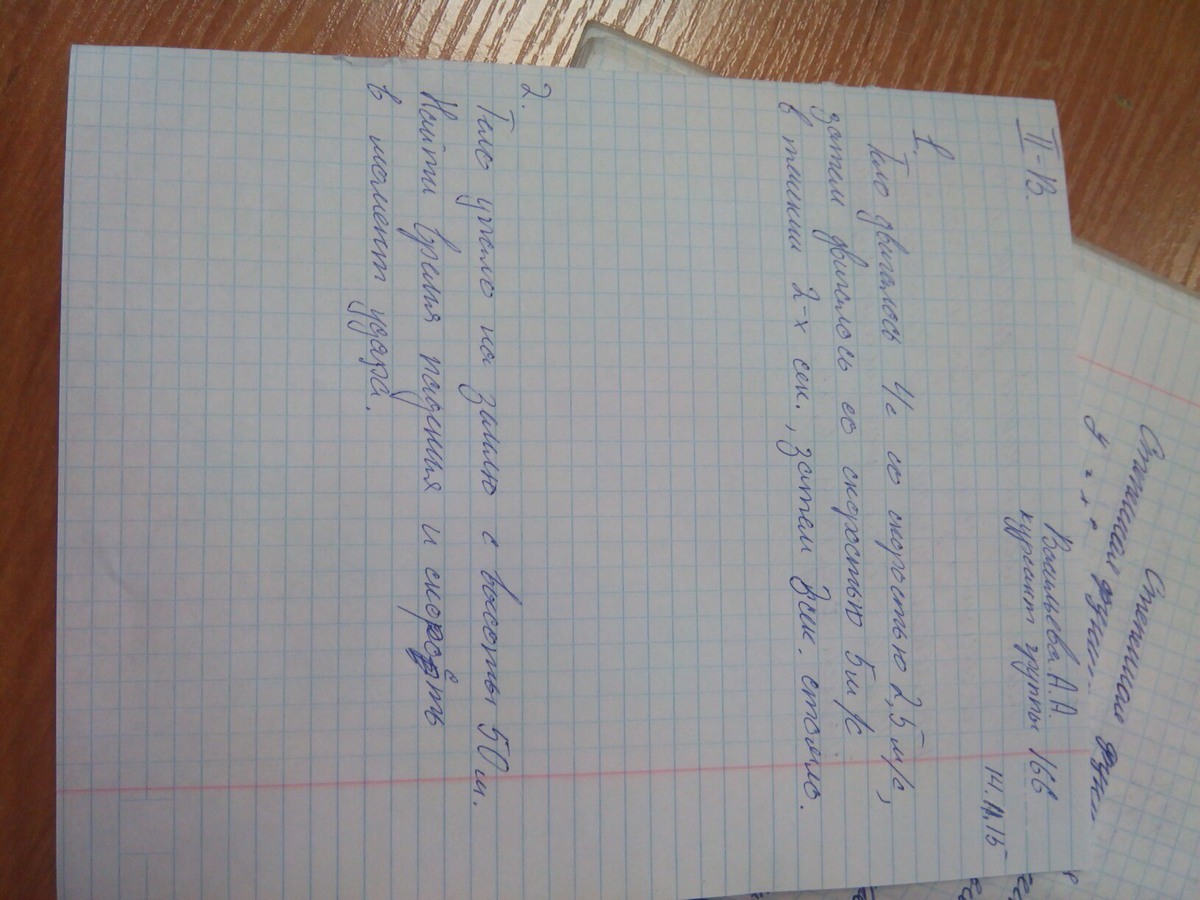 II-В.
Васильева А.А.
курсант группы 166
14.11.15
1.
Тело двигалось 4с со скоростью 2,5 м/с,
затем двигалось со скоростью 5 м/с
в течении 2-х сек., затем 3сек. стояло.
2.
Тело упало на землю с высоты 50 м.
Найти время падения и скорость
в момент удара.
Степенная функ
Степенная функ